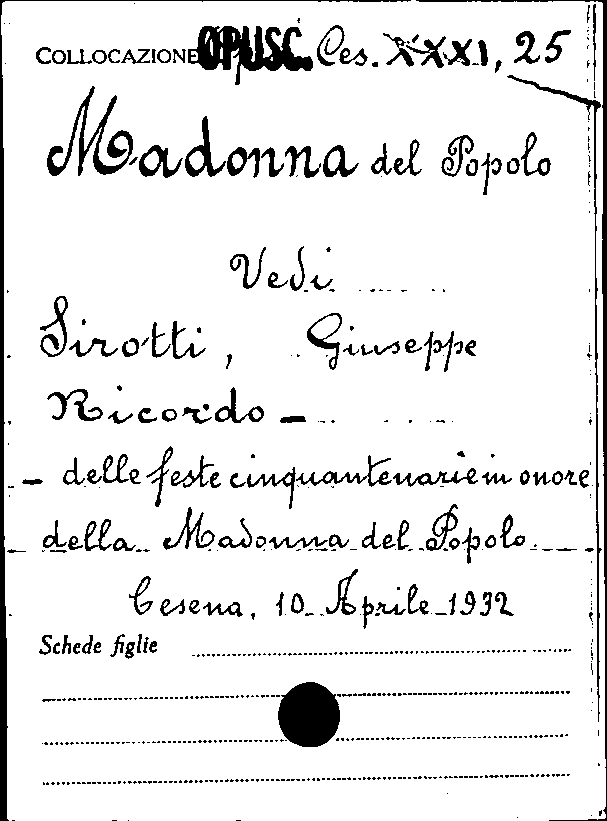 COLLOCAZIONE OPUSC. Ces. XXXI, 25
Madonna del Popolo
Vedi
Sirotti, Giuseppe
Ricordo -
- delle feste cinquantenarie in onore
della Madonna del Popolo
Cesena, 10 Aprile 1932
Schede figlie